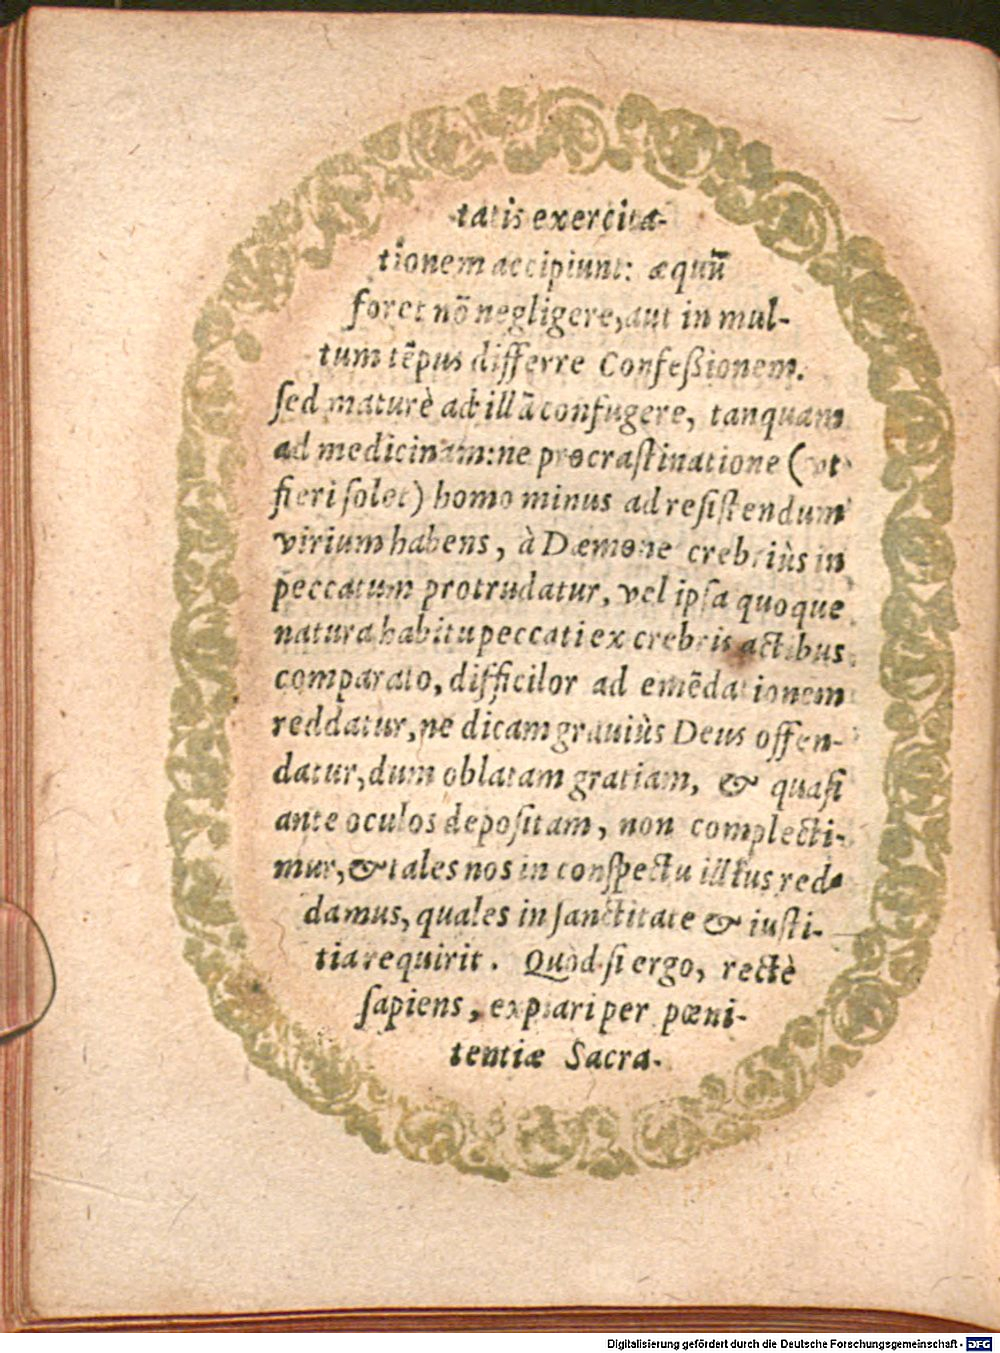 tatis exercita-
tionem accipiunt: æquũ
foret nõ negligere, aut in mul-
tum tẽpus differre Confeßionem.
ſed maturè ad illã confugere, tanquam
ad medicinam: ne procraſtinatione (vt
fieri ſolet) homo minus ad reſiſtendum
virium habens, à Dæmone crebriùs in
peccatum protrudatur, vel ipſa quoque
natura habitu peccati ex crebris actibus
comparato, difficilor ad emẽdationem
reddatur, ne dicam grauiùs Deus offen-
datur, dum oblatam gratiam, & quaſi
ante oculos depoſitam, non complecti-
mur, & tales nos in conſpectu illius red-
damus, quales in ſanctitate & iuſti-
tia requirit. Quòd ſi ergo, rectè
ſapiens, expiari per pœni-
tentiæ Sacra-
Digitalisierung gefördert durch die Deutsche Forschungsgemeinschaft - DFG